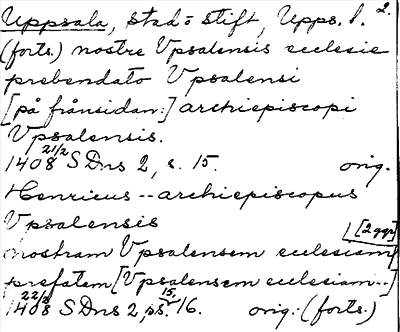 Uppsala, stad o stift, Upps. l. 2.
(forts.) nostre Vpsalensis ecclesie
prebendato Vpsalensi
[på frånsidan:] archiepiscopi
Vpsalensis.
1408 21/2 SDns 2, s. 15. orig.
Henricus -- archiepiscopus
Vpsalensis
nostram Vpsalensem ecclesiam [2ggr]
prefatam [Vpsalensem ecclesiam--]
1408 22/2 SDns 2, s. 15, 16. orig. (forts.)